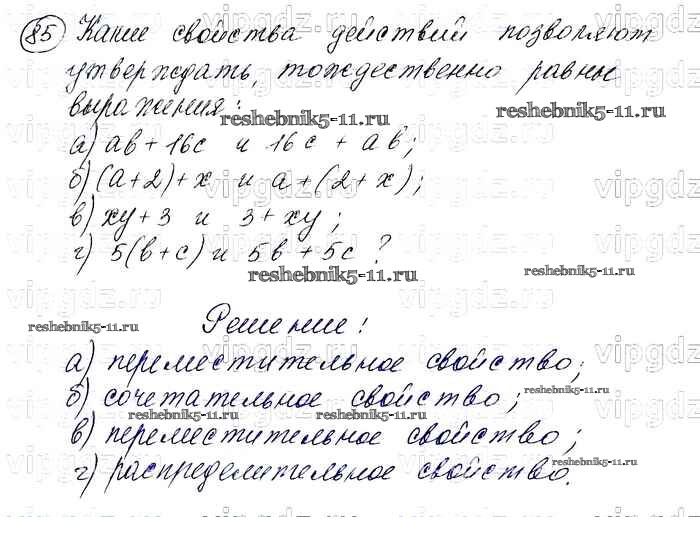 85 Какие свойства действий позволяют
утверждать, тождественно равны
выражения:
reshebnik5-11.ru reshebnik5-11.ru
а) ab + 16c и 16c + ab;
б) (a+2)+x и a+(2+x);
в) xy+3 и 3+xy;
г) 5(b+c) и 5b+5c?
reshebnik5-11.ru reshebnik5-11.ru
Решение:
reshebnik5-11.ru reshebnik5-11.ru
а) переместительное свойство;
б) сочетательное свойство;
reshebnik5-11.ru
reshebnik5-11.ru reshebnik5-11.ru
в) переместительное свойство;
г) распределительное свойство.
reshebnik5-11.ru